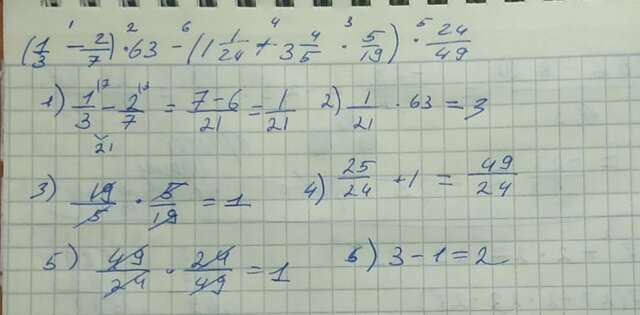 (1/3 - 2/7) · 63 - (1 1/24 + 3 4/5 · 5/19) · 24/49
1) 1/3 - 2/7 = 7-6/21 = 1/21 2) 1/21 · 63 = 3
21
3) 19/5 · 5/19 = 1 4) 25/24 + 1 = 49/24
5) 49/24 · 24/49 = 1 6) 3 - 1 = 2